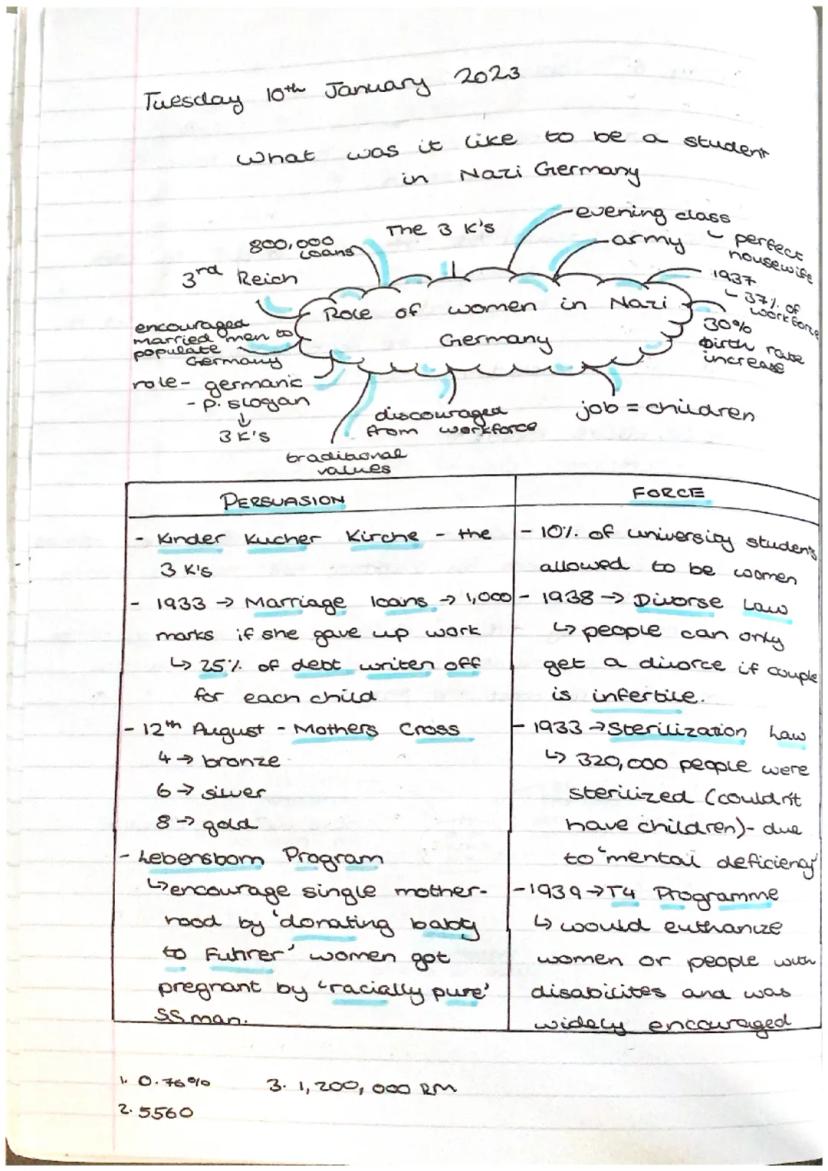 Tuesday 10th January 2023
What was it like to be a student
in Nazi Germany
The 3 K's
evening class
↳ perfect
housewife
army
800,000
loans
3rd Reich
1937
↳ 37% of
workforce
Role of women in Nazi
Germany
30%
birth rate
increase
encouraged
married men to
populate
Germany
role - germanic
- P. slogan
↓
3 K's
traditional
values
discouraged
from workforce
job = children
PERSUASION
- Kinder Kucher Kirche - the
3 K's
- 1933 → Marriage loans → 1,000
marks if she gave up work
↳ 25% of debt writen off
for each child
- 12th August - Mothers Cross
4 → bronze
6 → silver
8 → gold
- Lebensborn Program
↳ encourage single mother-
hood by 'donating baby
to Fuhrer' women got
pregnant by 'racially pure'
SS man.
FORCE
- 10% of university students
allowed to be women
- 1938 → Divorse Law
↳ people can only
get a divorce if couple
is infertile.
- 1933 → Sterilization Law
↳ 320,000 people were
sterilized (couldn't
have children) - due
to 'mental deficiency'
- 1939 → T4 Programme
↳ would euthanize
women or people with
disabilites and was
widely encouraged
1. 0.76%
3. 1,200,000 RM
2. 5560